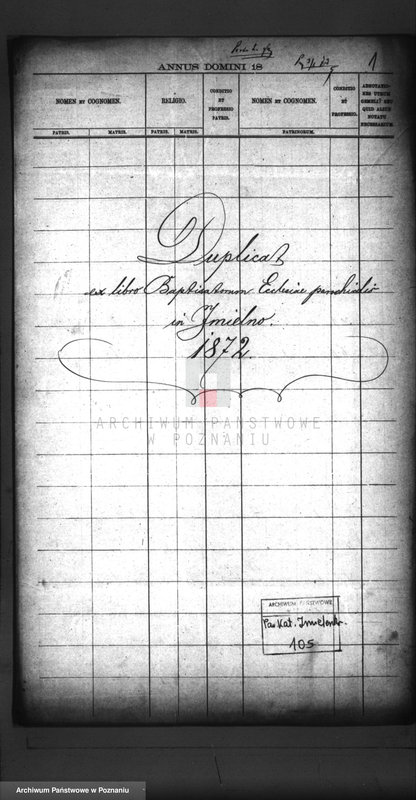 1
ANNUS DOMINI 18
NOMEN ET COGNOMEN.
RELIGIO.
CONDITIO
ET
PROFESSIO
PATRIS.
NOMEN ET COGNOMEN.
CONDITIO
ET
PROFESSIO.
ADNOTATIO-
NES UTRUM
GEMELLI SEU
QUID ALIUD
NOTATU
NECESSARIUM.
PATRIS.
MATRIS.
PATRIS.
MATRIS.
PATRINORUM.
Duplicat
ex libro Baptisatorum Ecclesiae parochialis
in Jmielno.
1872.
ARCHIWUM PAŃSTWOWE
W POZNANIU
ARCHIWUM PAŃSTWOWE
Par. Kat.
105
Archiwum Państwowe w Poznaniu